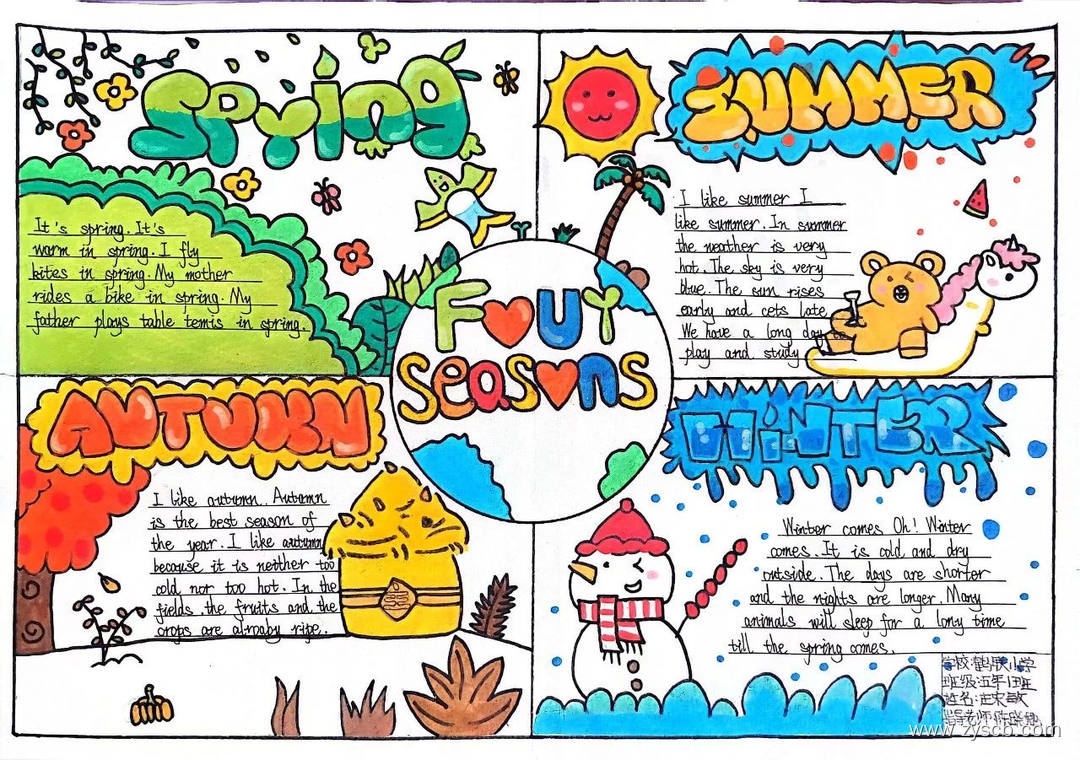 Spring
It's spring. It's
warm in spring. I fly
kites in spring. My mother
rides a bike in spring. My
father plays table tennis in spring.
SUMMER
I like summer I
like summer. In summer
the neather is very
hot. The sky is very
blue. The sun rises
early and cets late.
We have a long day to
play and study
Four
seasons
AUTUMN
I like autumn. Autumn
is the best season of
the year. I like autumn
because it is neither too
cold nor too hot. In the
fields the fruits and the
crops are already ripe.
WINTER
Winter comes Oh! Winter
comes. It is cold and dry
outside. The days are shorter
and the nights are longer. Many
animals will sleep for a long time
till the spring comes.
学校:
小学
班级:五年1班
姓名:
指导老师:陈
www.zyscb.com